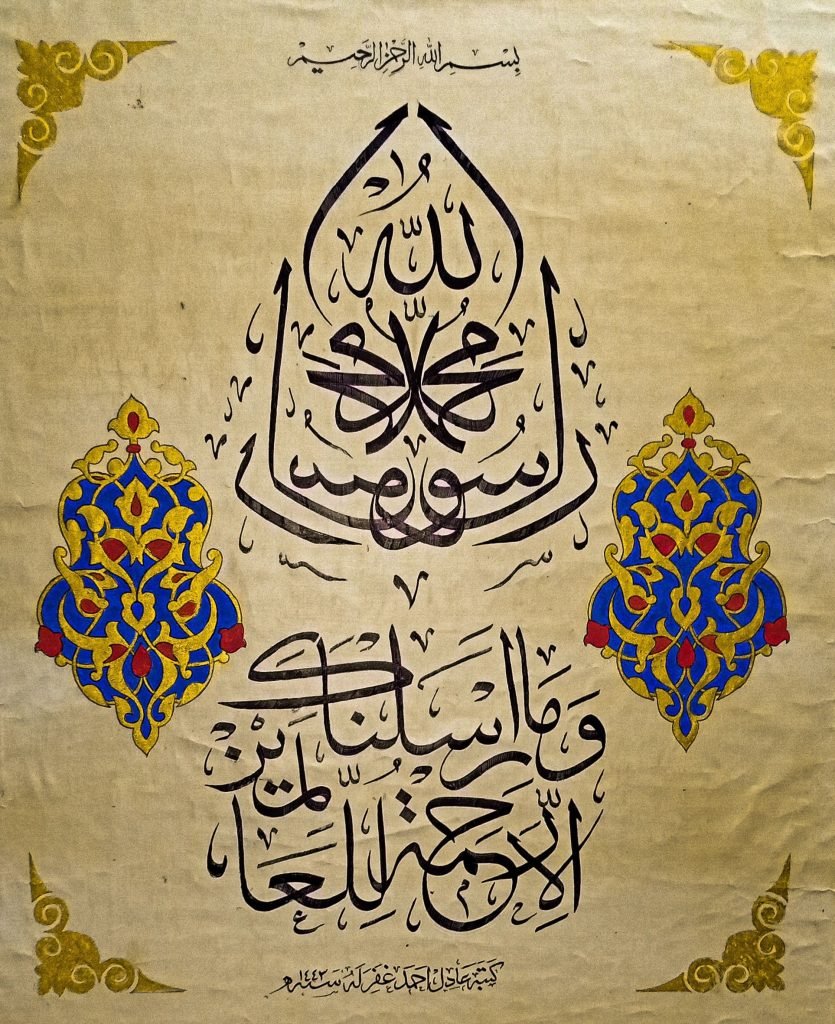 بِسْمِ اللهِ الرَّحْمٰنِ الرَّحِيْمِ
اللهُ
مُحَمَّد
رَسُول
وَمَا أَرْسَلْنَاكَ
إِلَّا رَحْمَةً لِلْعَالَمِينَ
كتبه عادل احمد غفر له سنه ١٤٤٢م